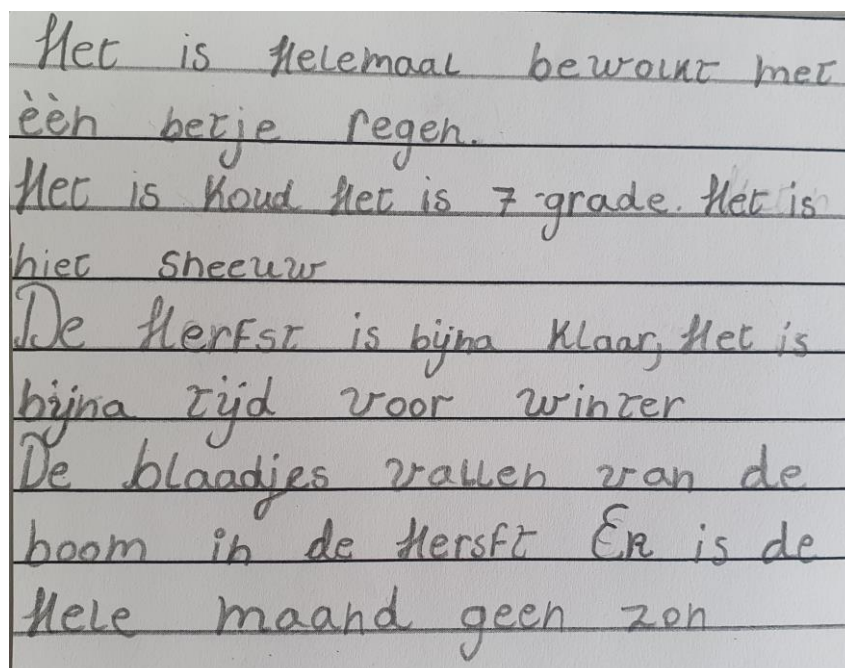 Het is Helemaal bewolkt met
èèn betje regen.
Het is Koud Het is 7 grade. Het is
niet sneeuw
De HerFst is bijna Klaar, Het is
bijna tijd voor winter
De blaadjes vallen van de
boom in de Hersft ER is de
Hele maand geen zon